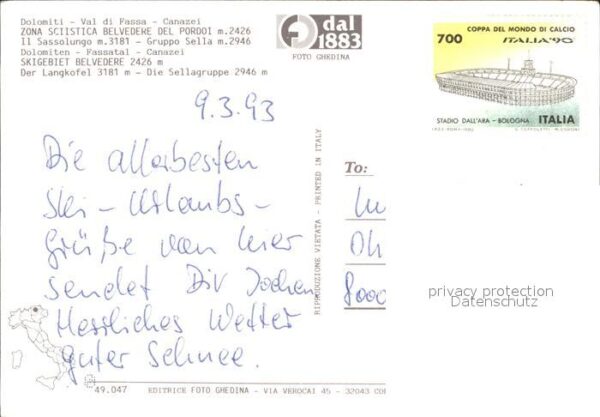 Dolomiti - Val di Fassa - Canazei
ZONA SCIISTICA BELVEDERE DEL PORDOI m.2426
Il Sassolungo m.3181 - Gruppo Sella m.2946
Dolomiten - Fassatal - Canazei
SKIGEBIET BELVEDERE 2426 m
Der Langkofel 3181 m - Die Sellagruppe 2946 m
dal
1883
FOTO GHEDINA
COPPA DEL MONDO DI CALCIO
700
ITALIA'90
STADIO DALL'ARA - BOLOGNA ITALIA
9.3.93
Die allerbesten
Ski-Urlaubs-
grüße von hier
sendet Dir Jochen
Herrliches Wetter
guter Schnee.
RIPRODUZIONE VIETATA - PRINTED IN ITALY
To:
Oh
8000
privacy protection
Datenschutz
49.047
EDITRICE FOTO GHEDINA - VIA VEROCAI 45 - 32043 COR